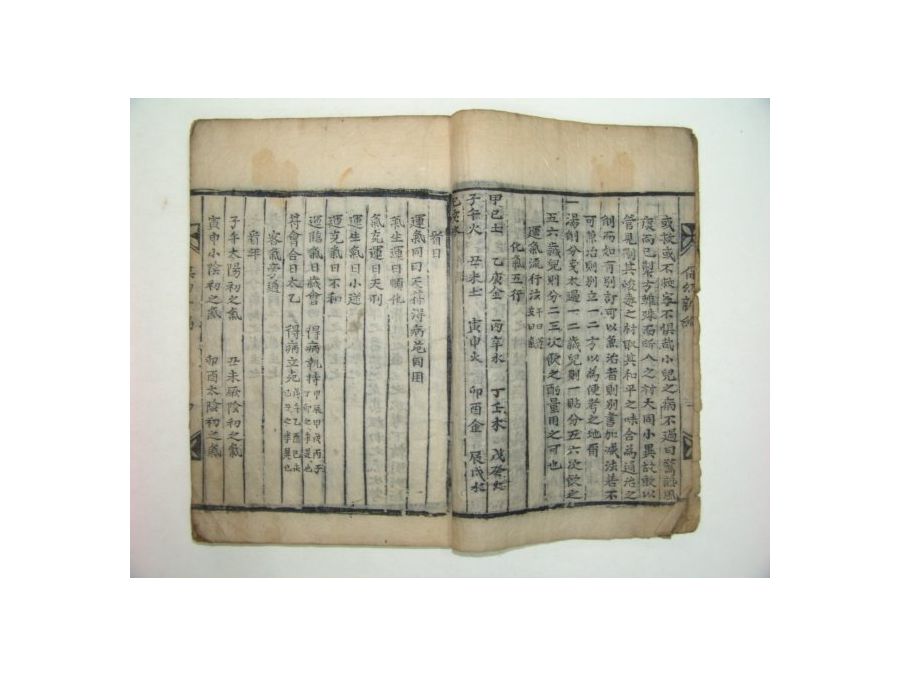 或救或不救 不惧哉小兒之病不過曰驚
度而已製方雖殊 所入之材大同小異故敢以
管見刪其峻毒之材取其和平之味合為通治之
劑而如有別訂可以兼治者則別書加减法若不
可兼治則別立一二方以為便考之地爾
一湯劑分 太過一二歲兒則一貼分五六次飲之
五六歲兒則分二三次飲之酌量用之可也
運氣流行法
化氣五行
甲己土 乙庚金 丙辛水 丁壬木 戊癸火
子午火 丑未土 寅申火 卯酉金 辰戌水
巳亥木
運氣同曰天符得病危同用
氣生運曰順化
氣克運曰天刑
運生氣曰小逆
運克氣曰不和
運臨氣曰歲會 得病執持
符會合曰太乙 得病立死
客氣
子午太陽初之氣 丑未厥陰初之氣
寅申小陰初之氣 卯酉太陰初之氣